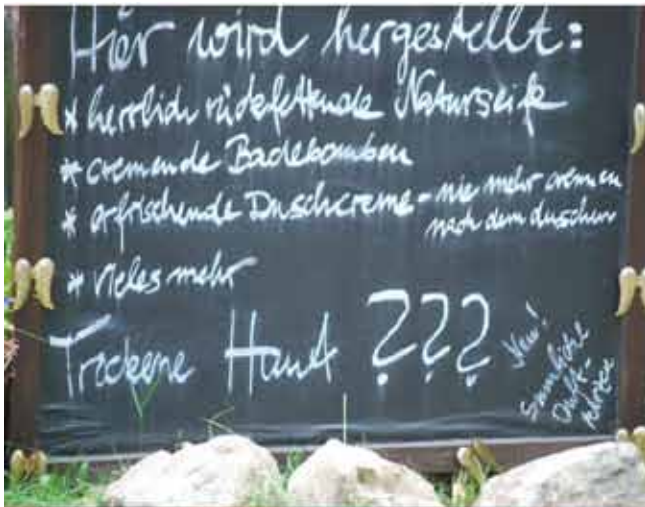 Hier wird hergestellt:
* herrlich rückfettende Naturseife
* cremende Badebomben
* erfrischende Duschcreme - nie mehr cremen
nach dem duschen
* vieles mehr
Trockene Haut ???
Neu!
Sinnliche
Duft-